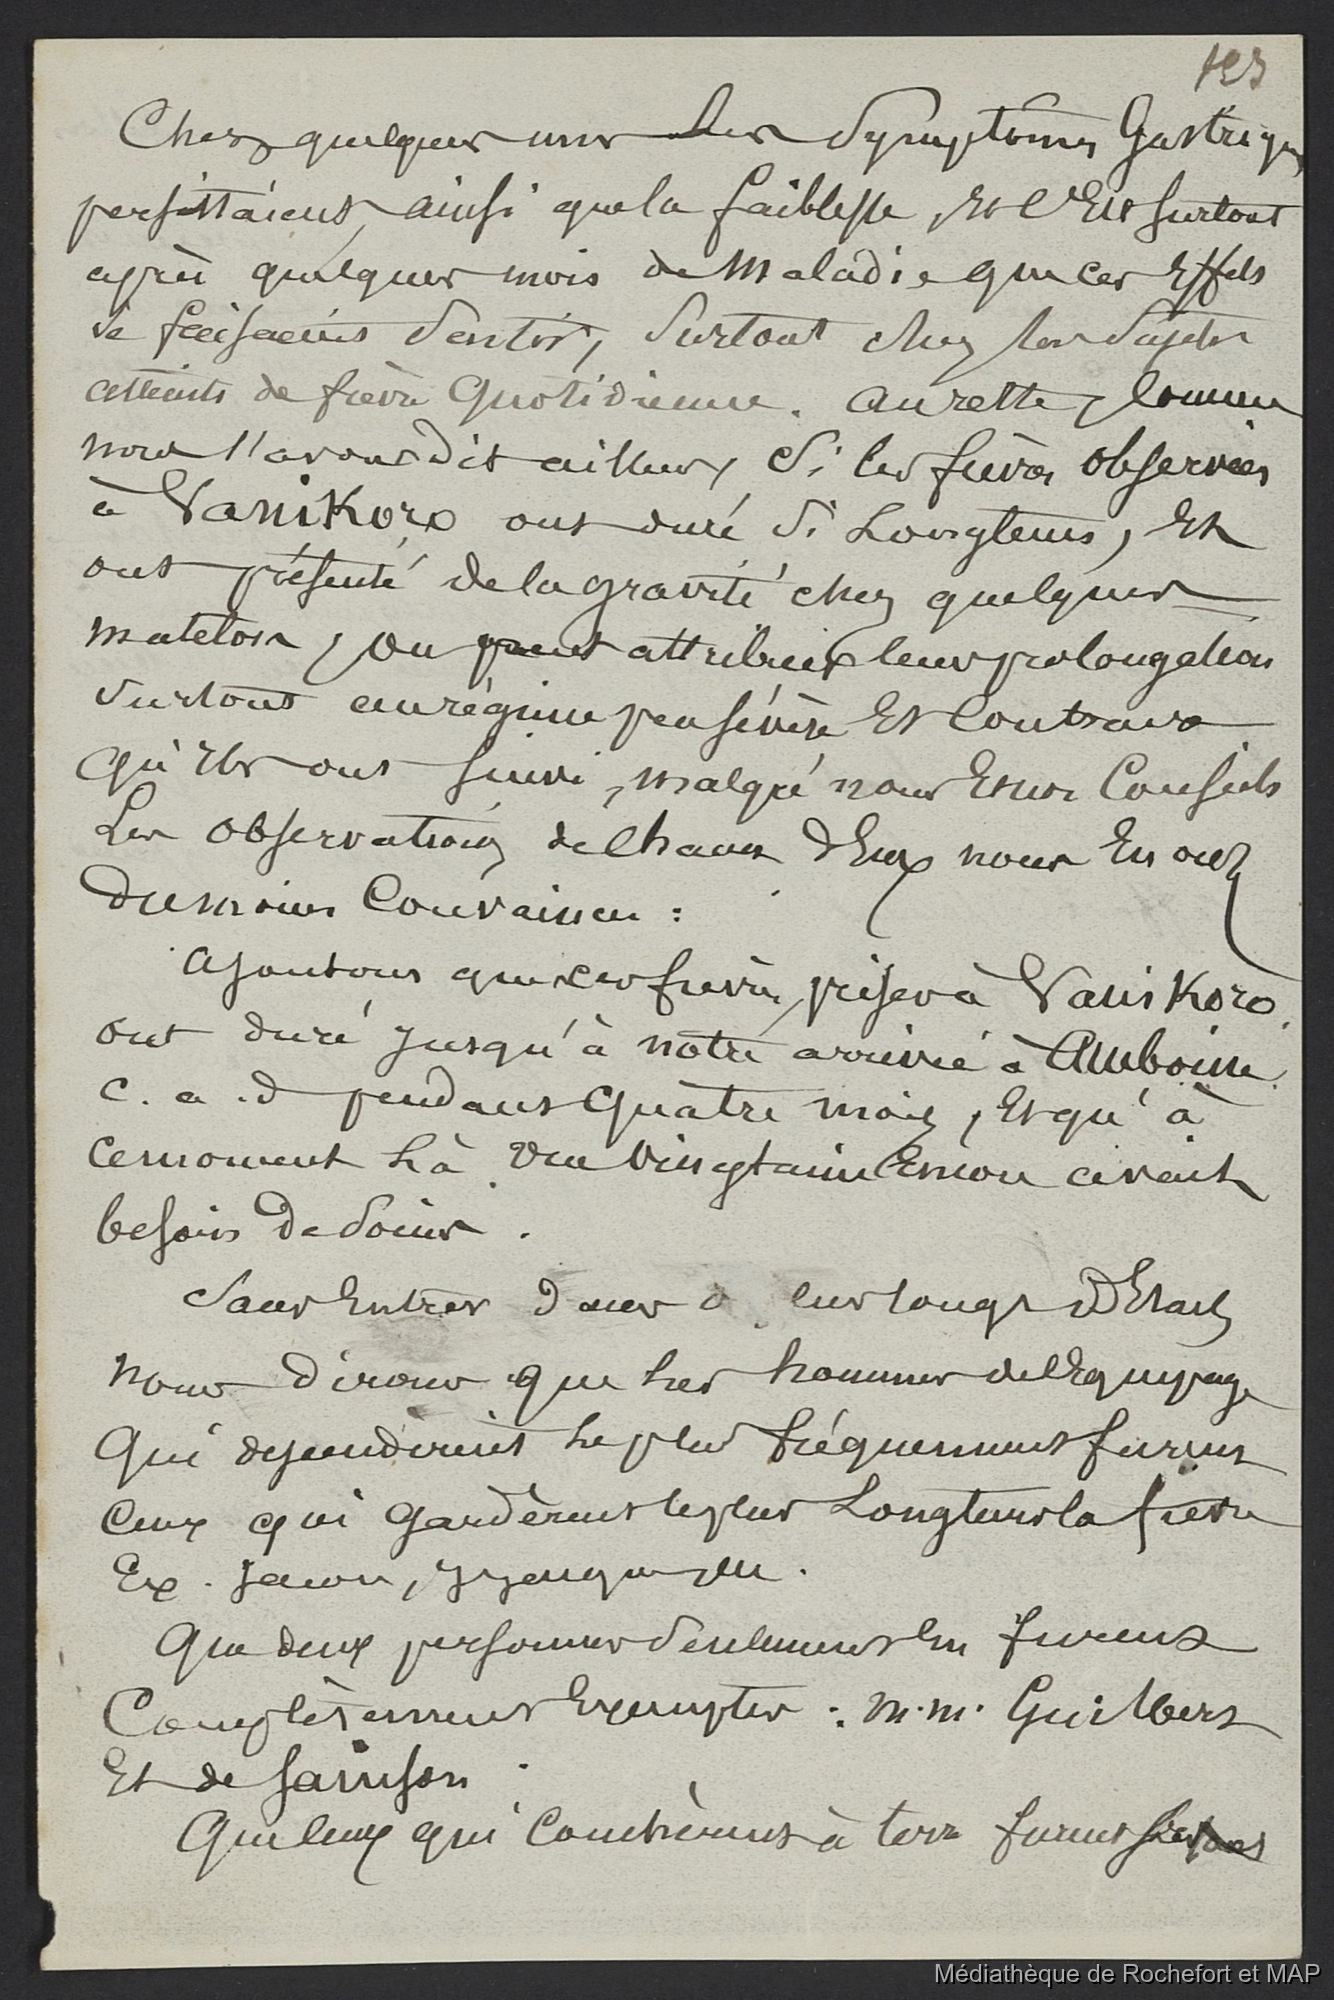 123
Chez quelques uns les Symptômes Gastriques
persistaient, ainsi que la faiblesse, Et c'Est surtout
après quelques mois de Maladie que ces Effets
se faisaient sentir, surtout chez les sujets
atteints de fièvre Quotidienne. au reste, comme
nous l'avons dit ailleurs, si les fièvres observées
à Vanikoro ont duré si Longtems, Et
ont présenté de la gravité chez quelques
matelots, on peut attribuer leur prolongation
surtout au régime peu sévère Et Contraire
qu'ils ont suivi, malgré nous Et nos Conseils
Les observations de Chacun d'Eux nous En ont
du moins Convaincu :
ajoutons que ces fièvres, prises à Vanikoro,
ont duré jusqu'à notre arrivée à Amboine.
c. a. d pendant Quatre mois, Et qu'à
ce moment là Une Vingtaine Encore avait
besoin De soins.
Sans Entrer dans de longs DEtails
nous Dirons que les hommes de l'Equipage
Qui descendirent le plus fréquemment furent
Ceux qui Gardèrent le plus Longtems la fièvre
Ex. Jacon,
Que deux personnes seulement En furent
Complètement Exemptes : M.M. Guilbert
Et de Sainson.
Que Ceux qui Couchèrent à terre furent
Médiathèque de Rochefort et MAP